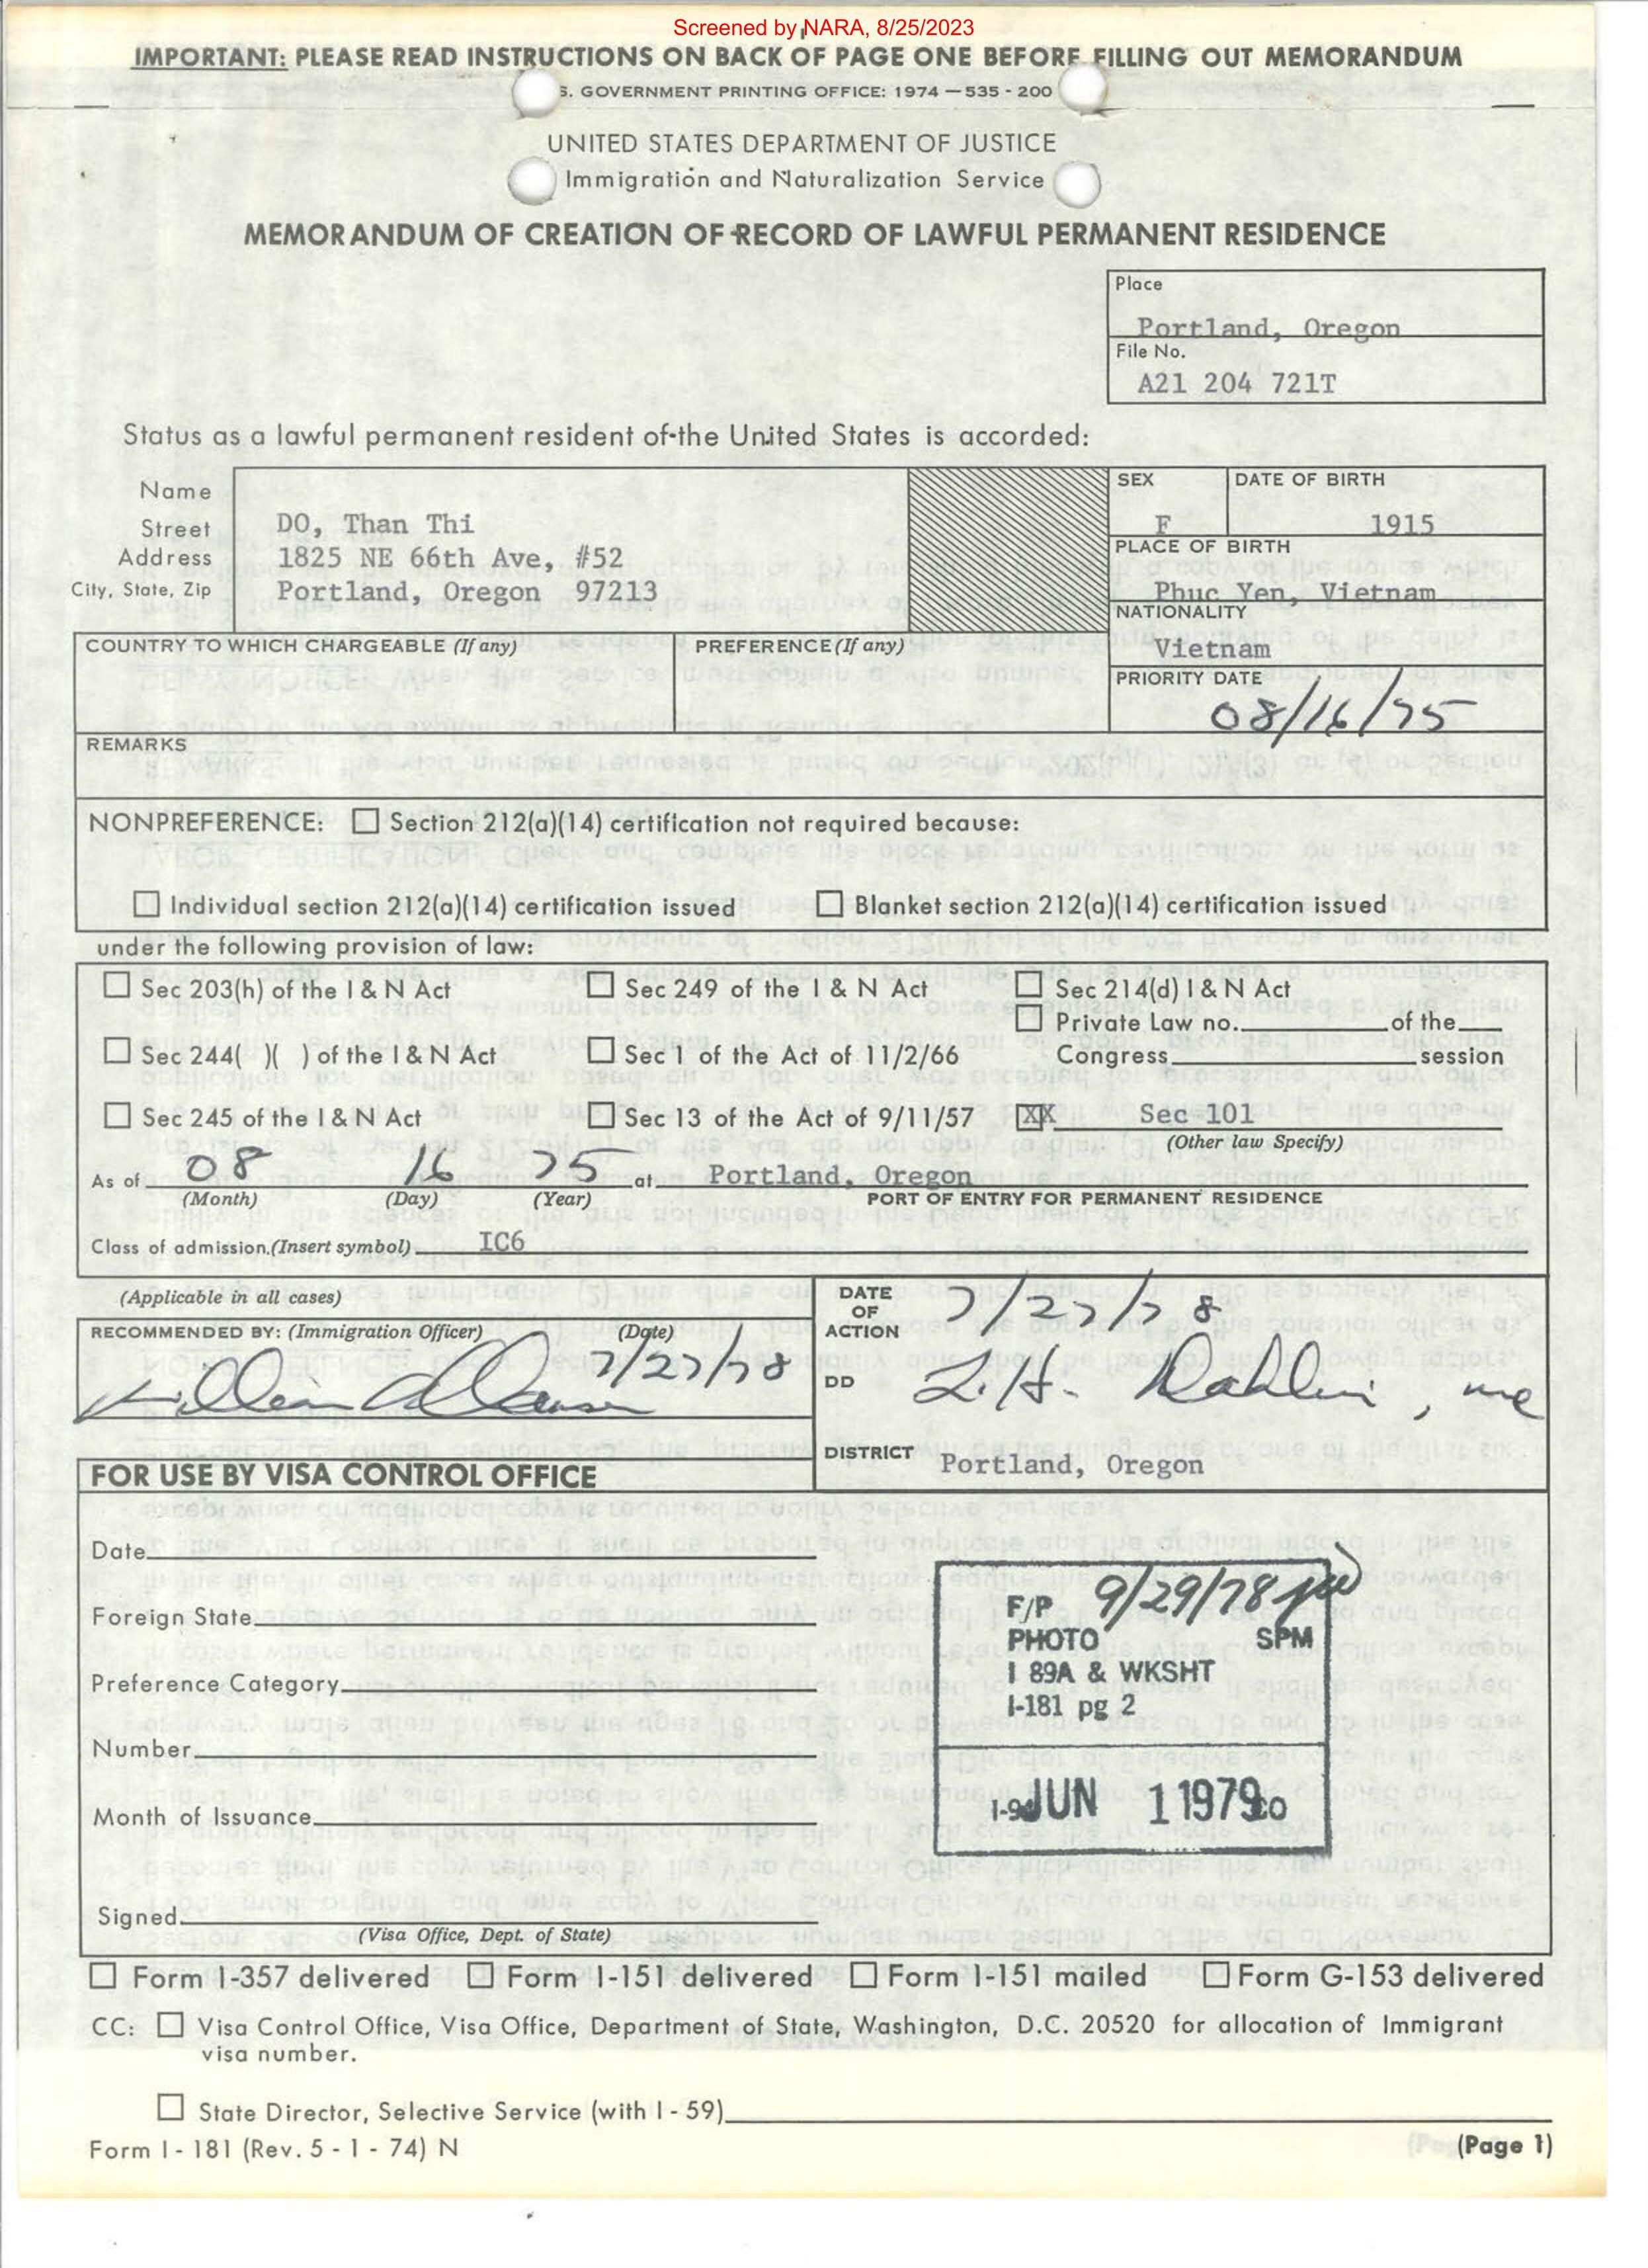 Screened by NARA, 8/25/2023
IMPORTANT: PLEASE READ INSTRUCTIONS ON BACK OF PAGE ONE BEFORE FILLING OUT MEMORANDUM
S. GOVERNMENT PRINTING OFFICE: 1974 — 535 - 200
UNITED STATES DEPARTMENT OF JUSTICE
Immigration and Naturalization Service
MEMORANDUM OF CREATION OF RECORD OF LAWFUL PERMANENT RESIDENCE
Place
Portland, Oregon
File No.
A21 204 721T
Status as a lawful permanent resident of the United States is accorded:
Name
Street
Address
City, State, Zip
DO, Than Thi
1825 NE 66th Ave, #52
Portland, Oregon 97213
SEX
F
DATE OF BIRTH
1915
PLACE OF BIRTH
Phuc Yen, Vietnam
NATIONALITY
Vietnam
COUNTRY TO WHICH CHARGEABLE (If any)
PREFERENCE (If any)
PRIORITY DATE
08/16/75
REMARKS
NONPREFERENCE: ☐ Section 212(a)(14) certification not required because:
☐ Individual section 212(a)(14) certification issued ☐ Blanket section 212(a)(14) certification issued
under the following provision of law:
☐ Sec 203(h) of the I & N Act ☐ Sec 249 of the I & N Act ☐ Sec 214(d) I & N Act
☐ Private Law no. of the
☐ Sec 244( )( ) of the I & N Act ☐ Sec 1 of the Act of 11/2/66 Congress session
☐ Sec 245 of the I & N Act ☐ Sec 13 of the Act of 9/11/57 XX Sec 101
(Other law Specify)
As of 08 16 75 at Portland, Oregon
(Month) (Day) (Year) PORT OF ENTRY FOR PERMANENT RESIDENCE
Class of admission.(Insert symbol) IC6
(Applicable in all cases)
RECOMMENDED BY: (Immigration Officer) (Date)
7/27/78
DATE OF ACTION 7/27/78
DD L.H. Dahlin,
DISTRICT Portland, Oregon
FOR USE BY VISA CONTROL OFFICE
Date
Foreign State
Preference Category
Number
Month of Issuance
Signed
(Visa Office, Dept. of State)
F/P 9/29/78
PHOTO SPM
I 89A & WKSHT
I-181 pg 2
JUN 1 1979
☐ Form I-357 delivered ☐ Form I-151 delivered ☐ Form I-151 mailed ☐ Form G-153 delivered
CC: ☐ Visa Control Office, Visa Office, Department of State, Washington, D.C. 20520 for allocation of Immigrant
visa number.
☐ State Director, Selective Service (with I - 59)
Form I - 181 (Rev. 5 - 1 - 74) N
(Page 1)